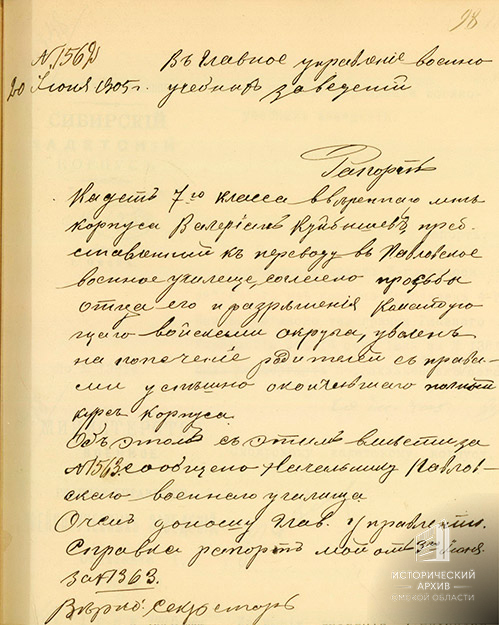 98
№ 1562 Въ Главное управленіе военно
20 Іюня 1905 г. учебныхъ заведеній
Рапортъ
Кадетъ 7го класса ввѣреннаго мнѣ
корпуса Валеріанъ Куйбышевъ, пред
ставленный къ переводу въ Павловское
военное училище, согласно просьбы
отца его и разрѣшенія Командую
щаго войсками округа, уволенъ
на попеченіе родителей съ права-
ми успѣшно окончившаго полный
курсъ Корпуса.
Объ этомъ съ этимъ вмѣстѣ за
№ 1563 сообщено Начальнику Павлов-
скаго военнаго училища
О чемъ доношу Глав. Управленію.
Справка рапортъ мой отъ 3го Іюня
за № 1363.
Вѣрно: Секретарь
СИБИРСКІЙ
КАДЕТСКІЙ
ИСТОРИЧЕСКИЙ
АРХИВ
ОМСКОЙ ОБЛАСТИ